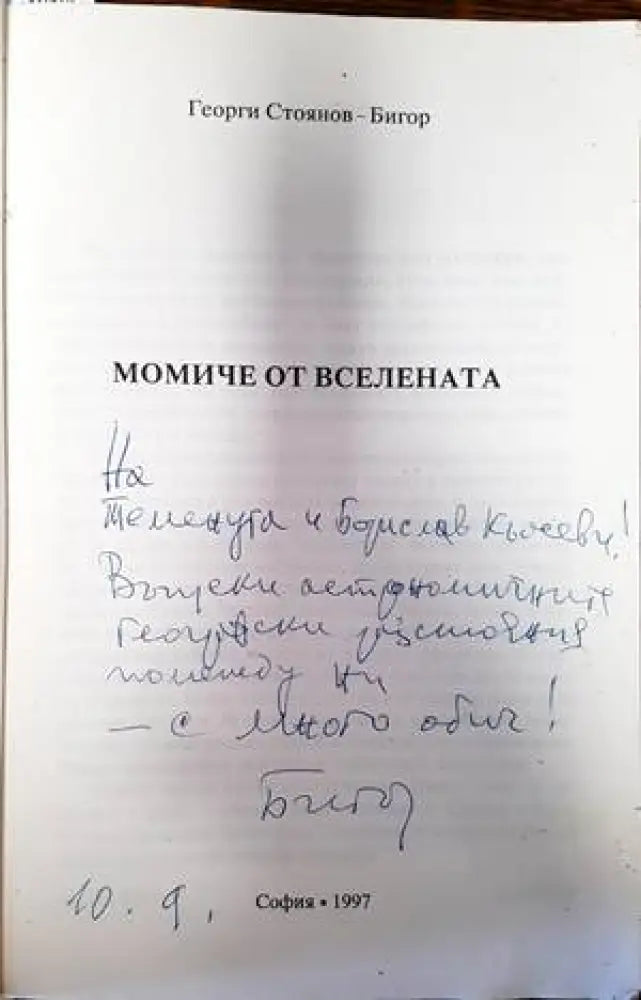 Георги Стоянов - Бигор
МОМИЧЕ ОТ ВСЕЛЕНАТА
На
Теменуга и Борислав Кьосеви!
Въпреки астрономичните
географски разстояния
помежду ни
— с много обич!
Бигор
10. 9.
София • 1997